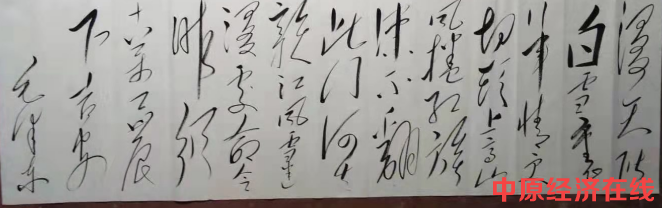 漫天皆
白雪里行
军情更
迫头上高山
风卷红旗
冻不翻
此行何去
赣江风雪迷
漫处命令
昨颁
十万工农
下吉安
毛泽东
中原经济在线